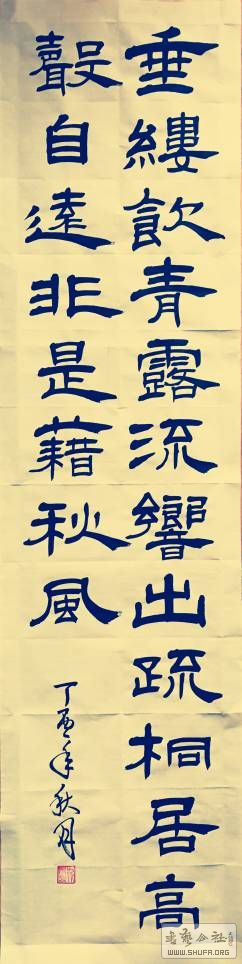 垂縷飲青露流響出疏桐居高
聲自遠非是藉秋風
丁酉年秋月
书艺公社
WWW.SHUFA.ORG